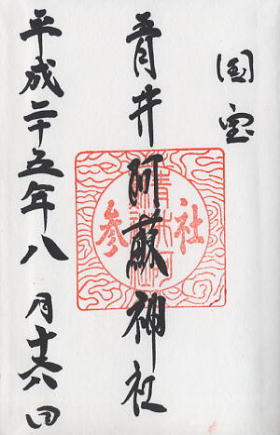 国宝
青井阿蘇神社
参社
平成二十五年八月十六日